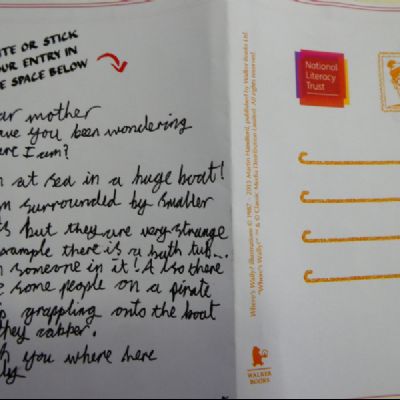 ITE OR STICK
OUR ENTRY IN
E SPACE BELOW
ar mother
ave you been wondering
ere I am?
m at sea in a huge boat!
m surrounded by smaller
s but they are very strange
example there is a bath tub
someone in it! Also there
e some people on a pirate
grappling onto the boat
they
h you where here
lly
National
Literacy
Trust
Where's Wally? illustrations © 1987 - 2015 Martin Handford, published by Walker Books Ltd.
"Where's Wally?"™ & © Classic Media Distribution Limited. All rights reserved.
WALKER
BOOKS